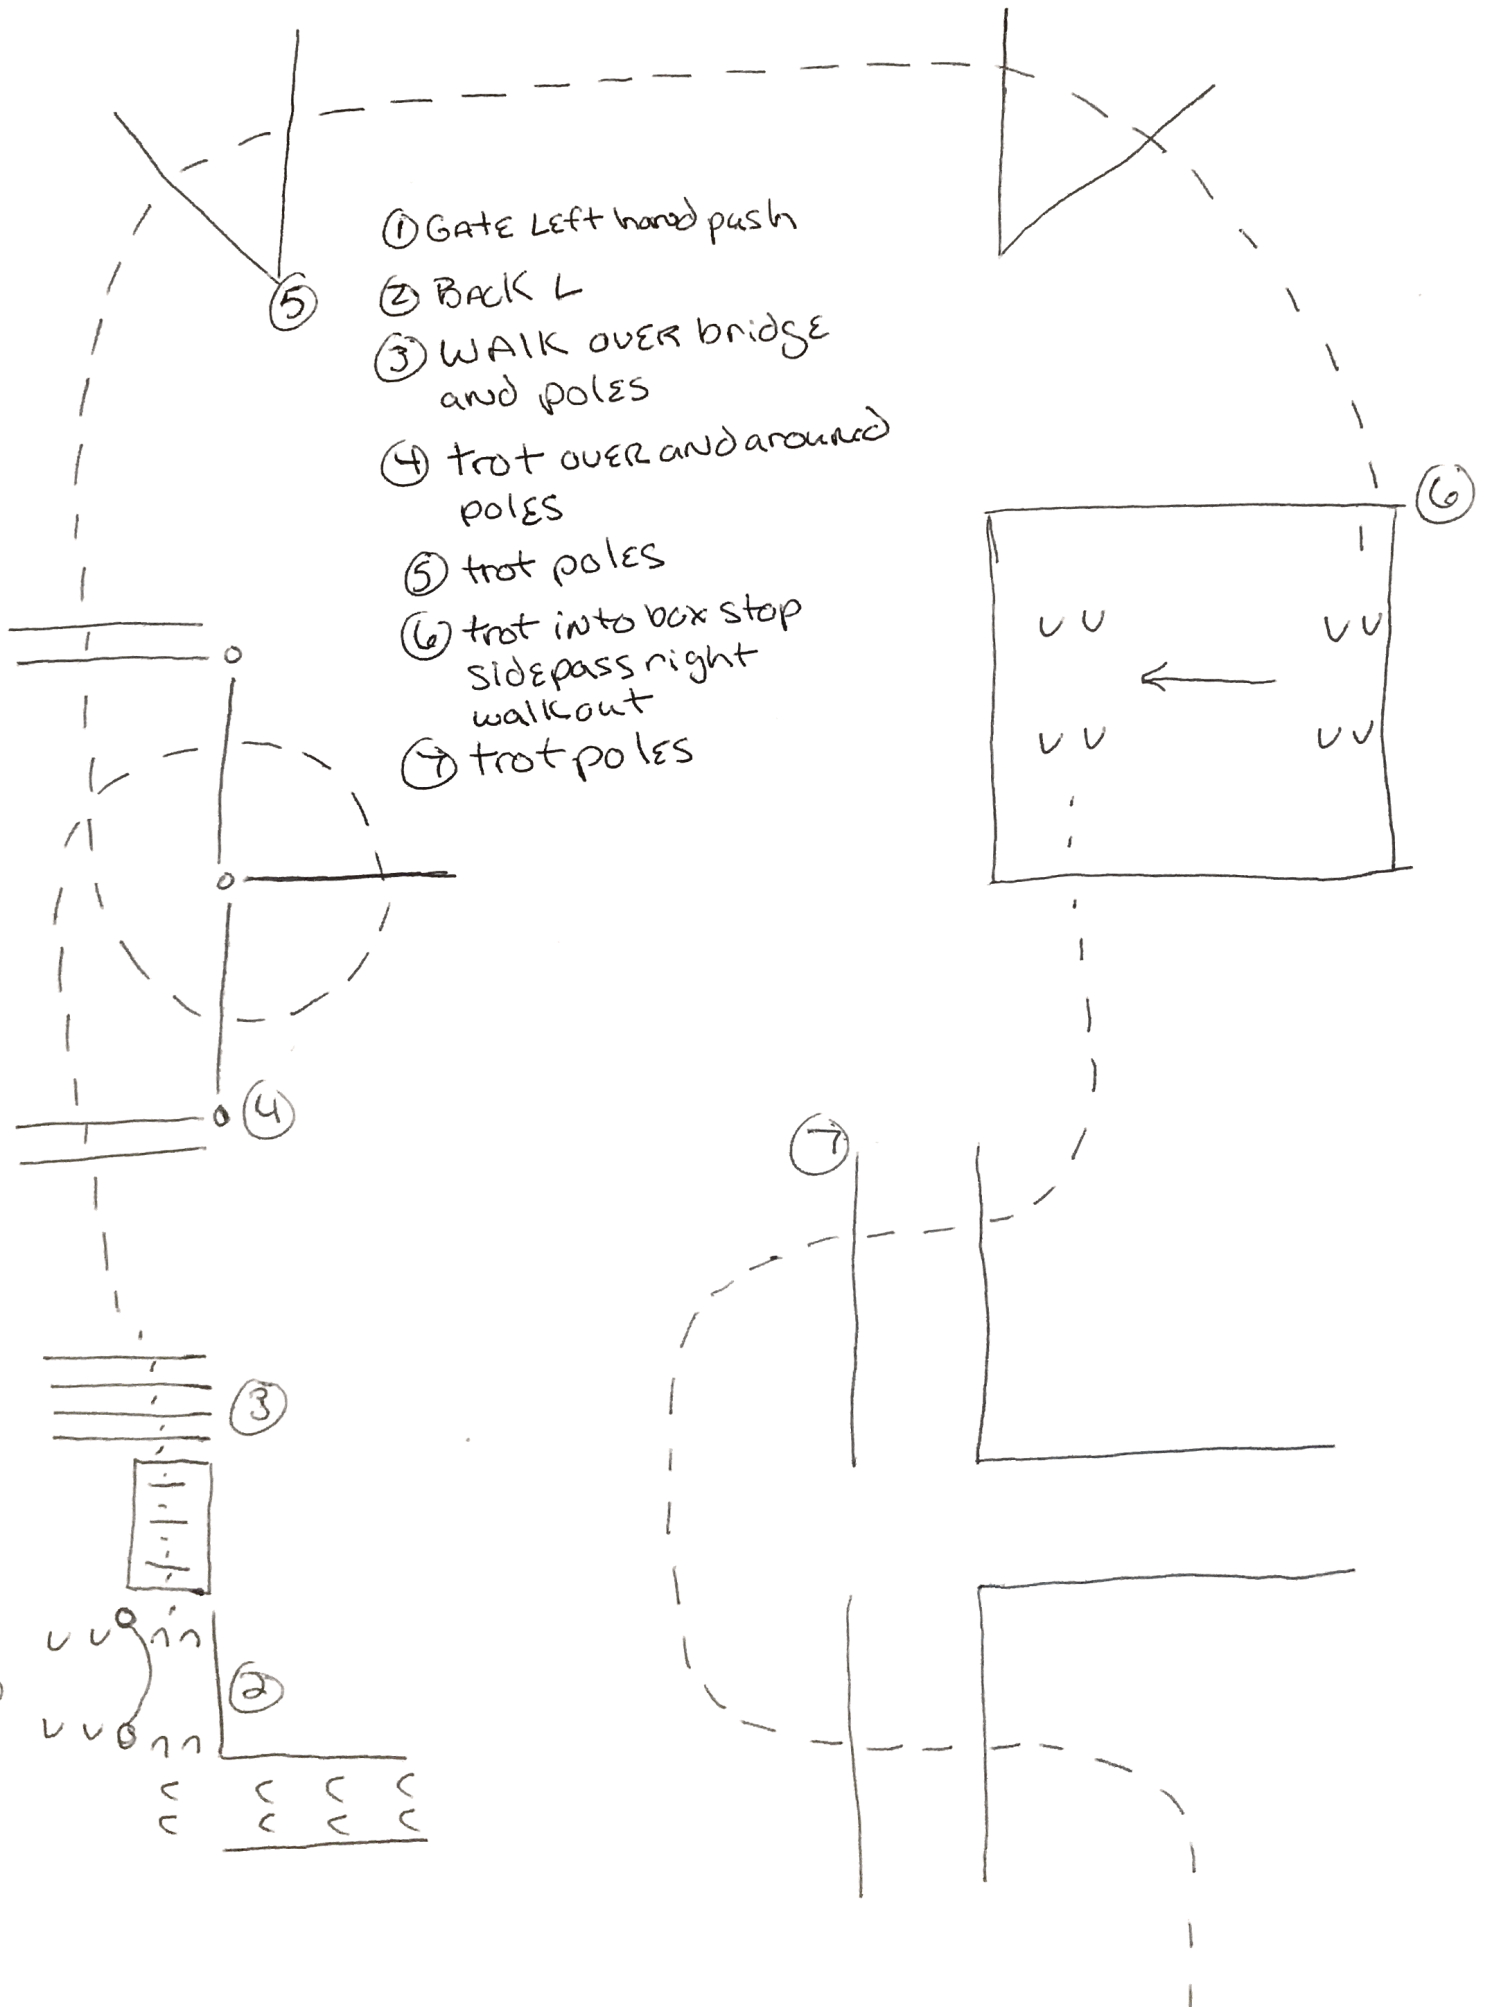 ① GATE Left hand push
② BACK L
③ WALK OVER bridge
and poles
④ trot OVER and around
poles
⑤ trot poles
⑥ trot into box stop
sidepass right
walk out
⑦ trot poles
⑤
⑥
④
⑦
③
②